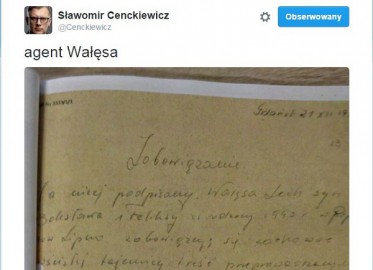 Sławomir Cenckiewicz
@Cenckiewicz
Obserwowany
agent Wałęsa
Gdańsk 21 XII 19
Zobowiązanie
niżej podpisany Wałęsa Lech syn
Bolesława i Feliksy urodzony 1943 r
Lipno zobowiązuję się zachować
tajemnicy treść